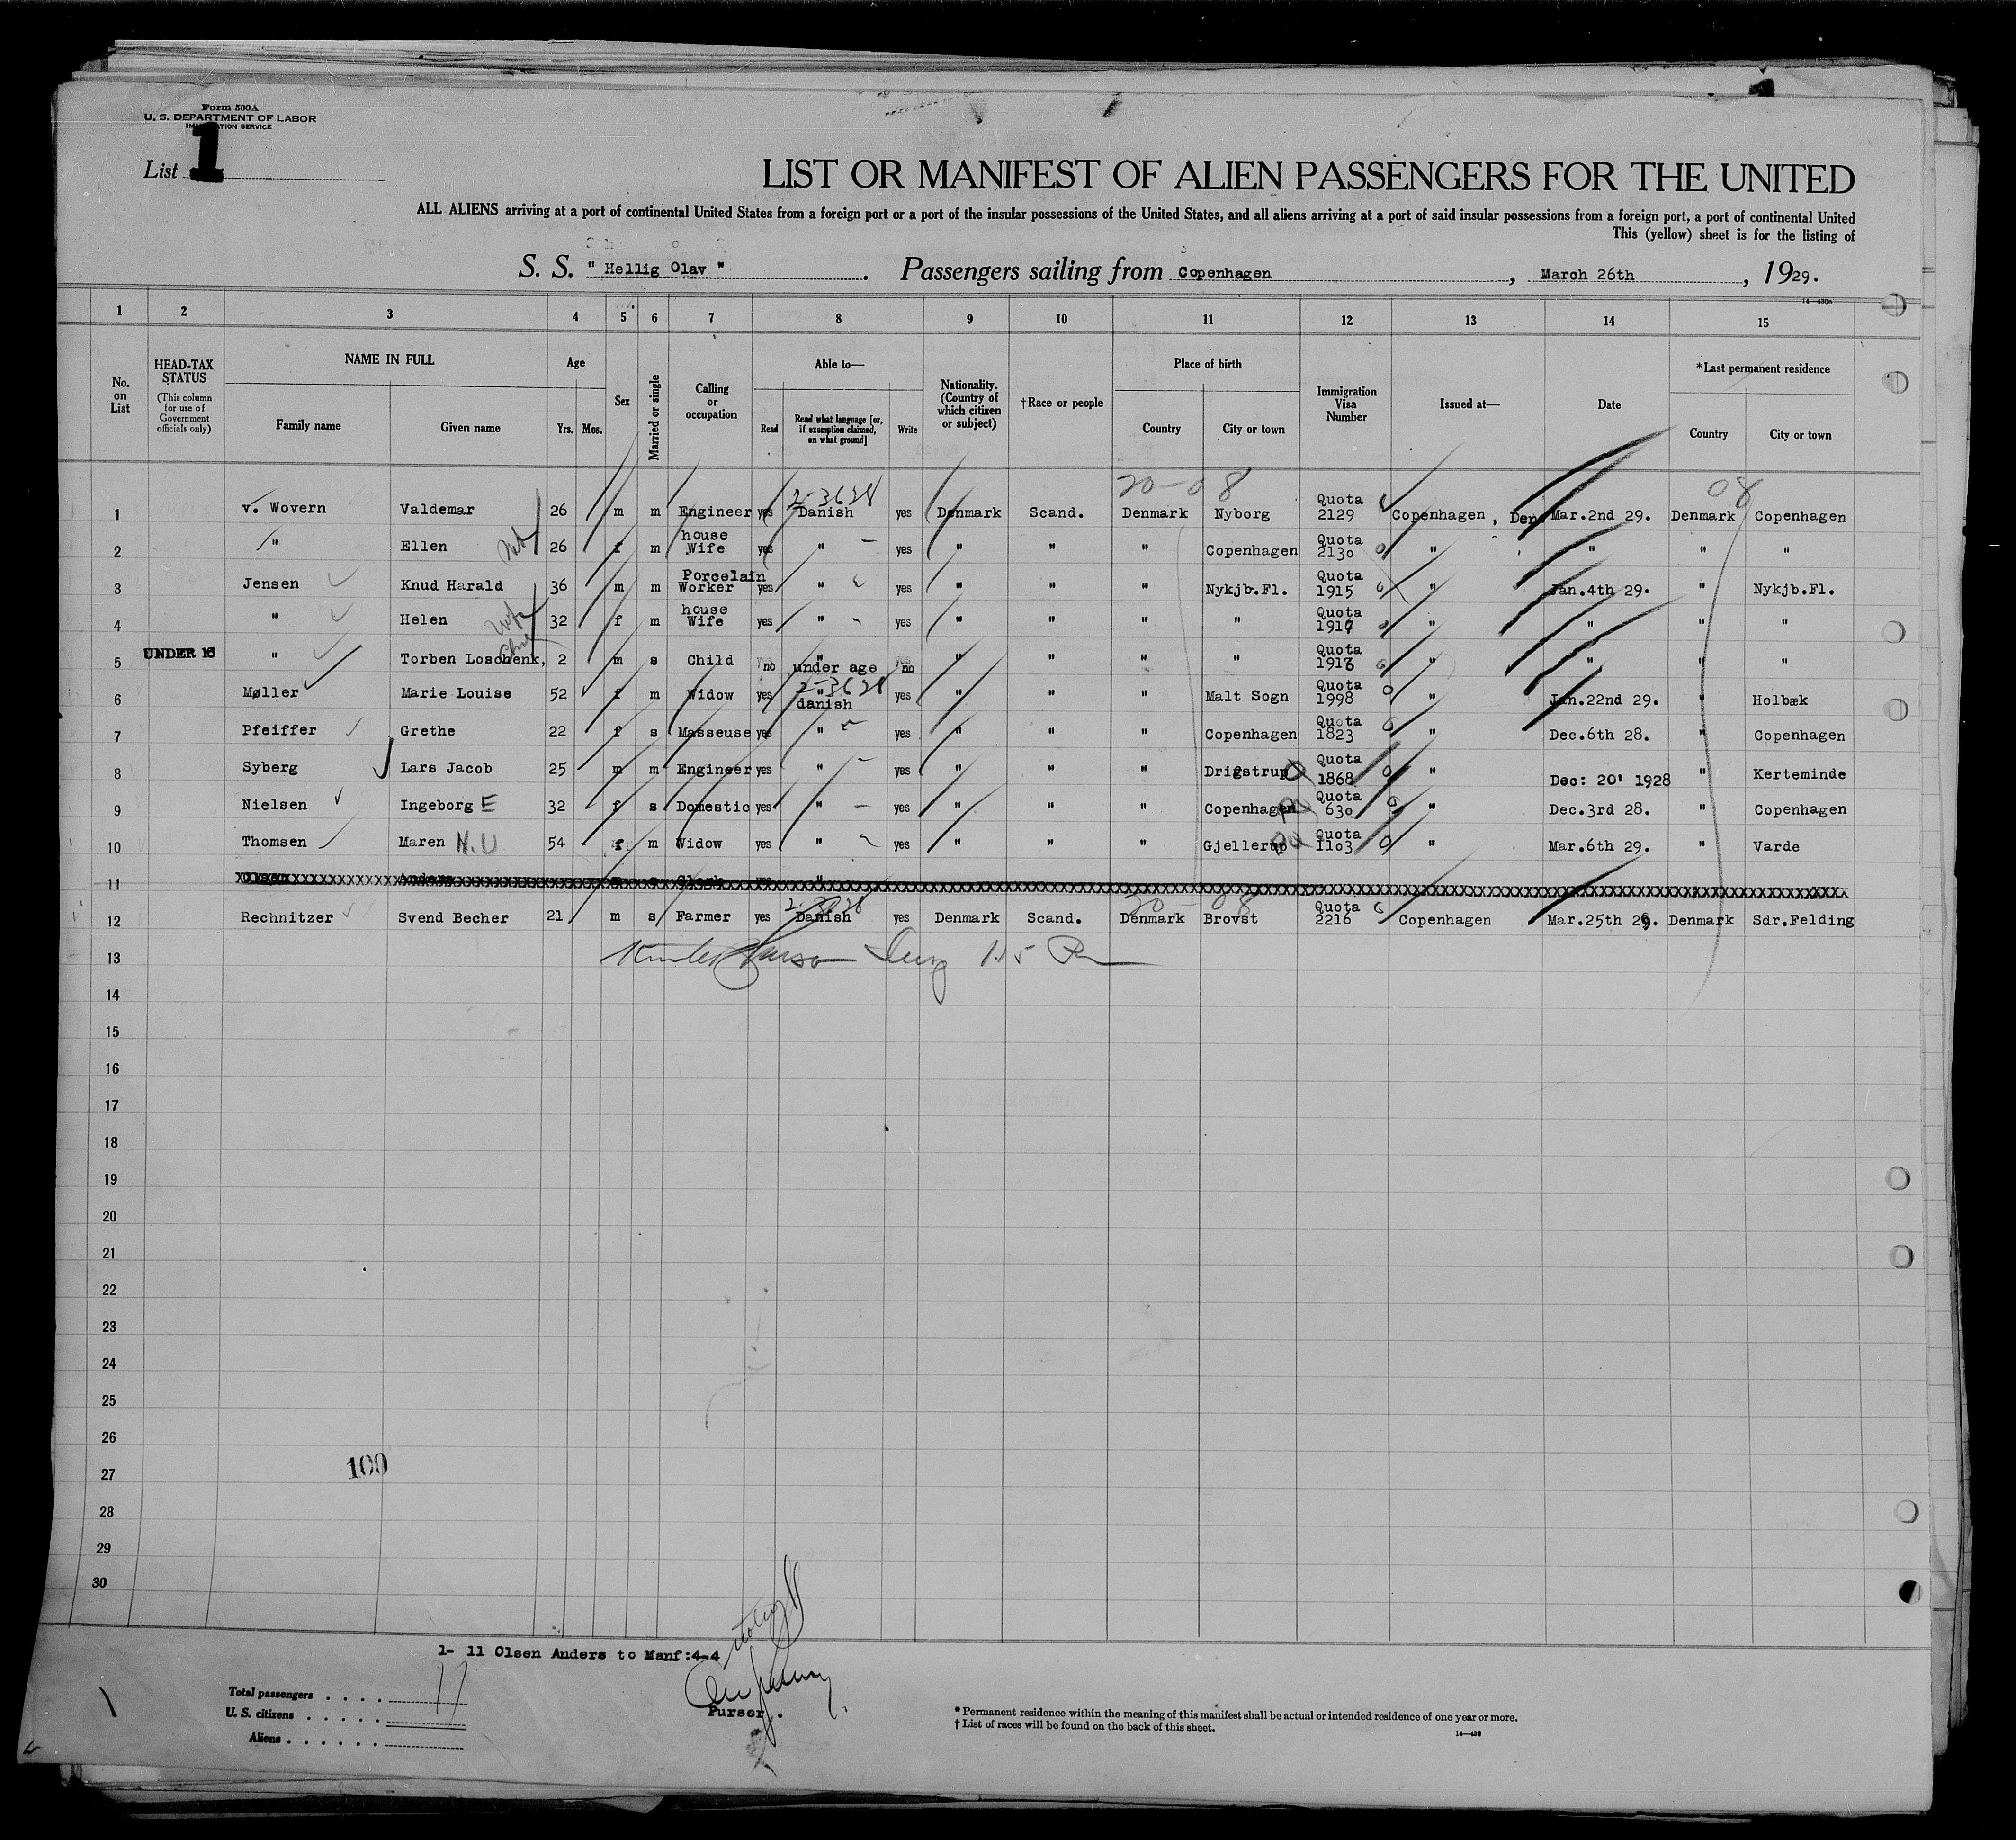 Form 500A
U. S. DEPARTMENT OF LABOR
IMMIGRATION SERVICE
List 1
LIST OR MANIFEST OF ALIEN PASSENGERS FOR THE UNITED
ALL ALIENS arriving at a port of continental United States from a foreign port or a port of the insular possessions of the United States, and all aliens arriving at a port of said insular possessions from a foreign port, a port of continental United
This (yellow) sheet is for the listing of
S. S. " Hellig Olav " . Passengers sailing from Copenhagen , March 26th , 1929.
1 2 3 4 5 6 7 8 9 10 11 12 13 14 15
No. on List
HEAD-TAX STATUS (This column for use of Government officials only)
NAME IN FULL Family name Given name
Age Yrs. Mos.
Sex
Married or single
Calling or occupation
Able to— Read Read what language [or, if exemption claimed, on what ground] Write
Nationality. (Country of which citizen or subject)
†Race or people
Place of birth Country City or town
Immigration Visa Number
Issued at—
Date
*Last permanent residence Country City or town
20-08 08
1 v. Wovern Valdemar 26 m m Engineer yes 2-3628 Danish yes Denmark Scand. Denmark Nyborg Quota 2129 Copenhagen, Den Mar.2nd 29. Denmark Copenhagen
2 " Ellen 26 f m house Wife yes " yes " " " Copenhagen Quota 2130 " " " "
3 Jensen Knud Harald 36 m m Porcelain Worker yes " yes " " " Nykjb.Fl. Quota 1915 " Jan.4th 29. " Nykjb.Fl.
4 " Helen wife 32 f m house Wife yes " yes " " " " Quota 1917 " " " "
5 UNDER 16 " Torben Loschenk, 2 m s Child no " under age no " " " " Quota 1916 " " " "
6 Møller Marie Louise 52 f m Widow yes 2-3628 " danish yes " " " Malt Sogn Quota 1998 " Jan.22nd 29. " Holbæk
7 Pfeiffer Grethe 22 f s Masseuse yes " yes " " " Copenhagen Quota 1823 " Dec.6th 28. " Copenhagen
8 Syberg Lars Jacob 25 m m Engineer yes " yes " " " Drigstrup Quota 1868 " Dec: 20' 1928 " Kerteminde
9 Nielsen Ingeborg E 32 f s Domestic yes " yes " " " Copenhagen Quota 630 " Dec.3rd 28. " Copenhagen
10 Thomsen Maren N.U 54 f m Widow yes " yes " " " Gjellerup Quota 1103 " Mar.6th 29. " Varde
11 Olsen Anders m s Clerk yes "
12 Rechnitzer Svend Becher 21 m s Farmer yes Danish yes Denmark Scand. Denmark Brovst Quota 2216 Copenhagen Mar.25th 29. Denmark Sdr.Felding
13
14
15
16
17
18
19
20
21
22
23
24
25
26
27
28
29
30
100
1- 11 Olsen Anders to Manf:4-4
Total passengers . . . . 11
U. S. citizens . . . . .
Aliens . . . . . .
Purser.
* Permanent residence within the meaning of this manifest shall be actual or intended residence of one year or more.
† List of races will be found on the back of this sheet.
14—430